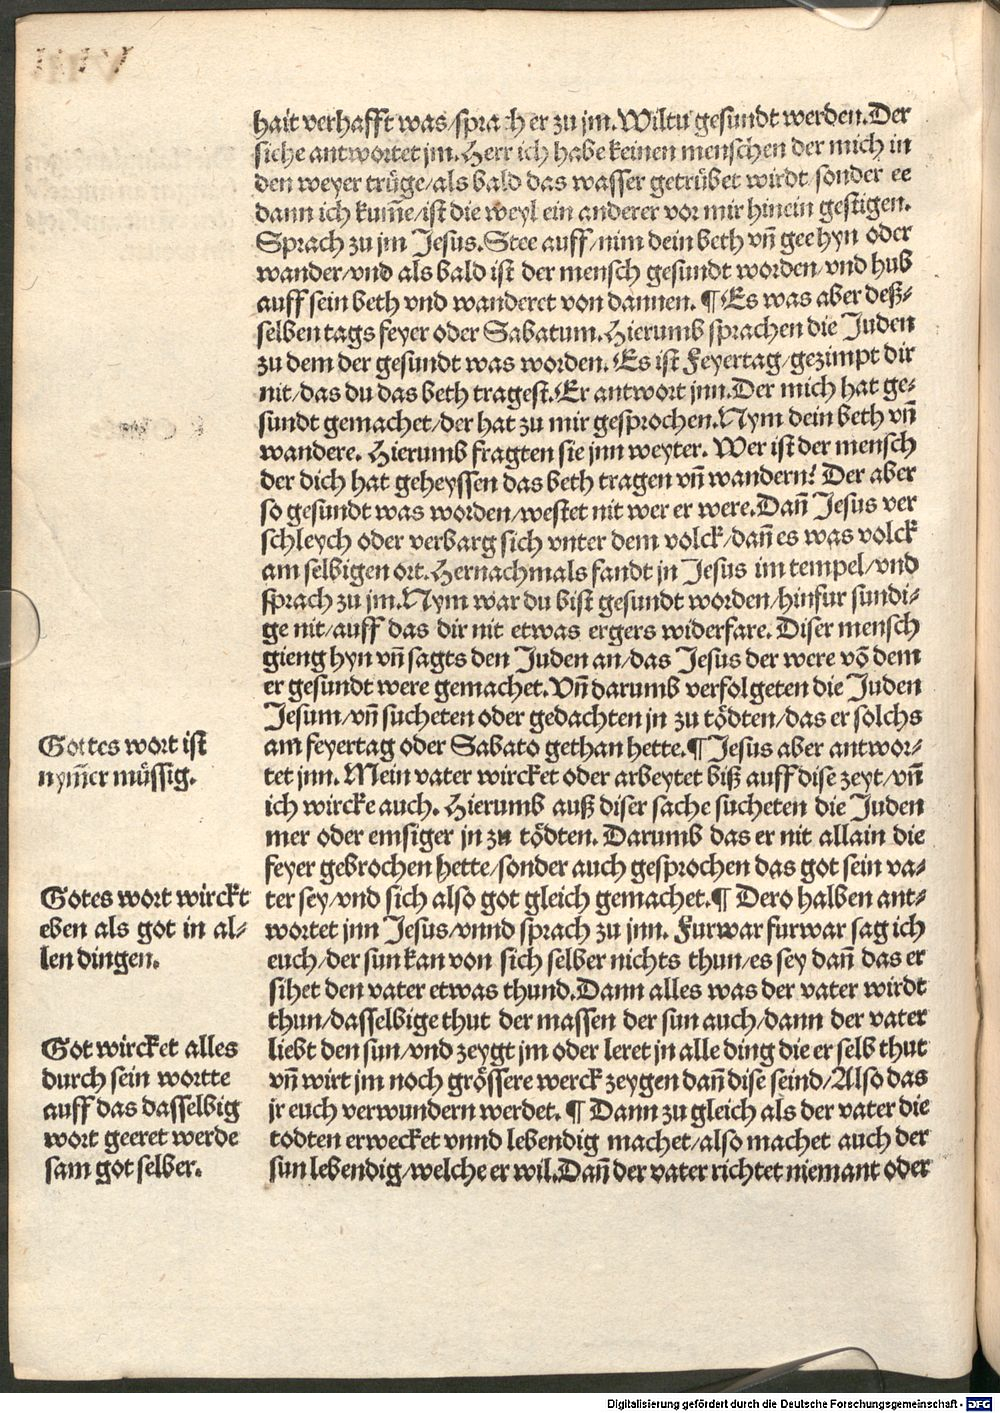 hait verhafft was/sprach er zu jm. Wiltu gesundt werden. Der
siche antwortet jm. Herr ich habe keinen menschen der mich in
den weyer trüge/als bald das wasser getrübet wirdt/sonder ee
dann ich kum̄e/ist die weyl ein anderer vor mir hinein gestigen.
Sprach zu jm Jesus. Stee auff/nim dein beth vn̄ gee hyn oder
wander/vnd als bald ist der mensch gesundt worden/vnd hub
auff sein beth vnd wanderet von dannen. ¶ Es was aber deß-
selben tags feyer oder Sabatum. Hierumb sprachen die Juden
zu dem der gesundt was worden. Es ist Feyertag/gezimpt dir
nit/das du das beth tragest. Er antwort jnn. Der mich hat ge-
sundt gemachet/der hat zu mir gesprochen. Nym dein beth vn̄
wandere. Hierumb fragten sie jnn weyter. Wer ist der mensch
der dich hat geheyssen das beth tragen vn̄ wandern? Der aber
so gesundt was worden/westet nit wer er were. Dan̄ Jesus ver
schleych oder verbarg sich vnter dem volck/dan̄ es was volck
am selbigen ort. Hernachmals fandt jn Jesus im tempel/vnd
sprach zu jm. Nym war du bist gesundt worden/hinfur sundi-
ge nit/auff das dir nit etwas ergers widerfare. Diser mensch
gieng hyn vn̄ sagts den Juden an/das Jesus der were vō dem
er gesundt were gemachet. Vn̄ darumb verfolgeten die Juden
Jesum/vn̄ sucheten oder gedachten jn zu tödten/das er solchs
am feyertag oder Sabato gethan hette. ¶ Jesus aber antwor-
tet jnn. Mein vater wircket oder arbeytet biß auff dise zeyt/vn̄
ich wircke auch. Hierumb auß diser sache sucheten die Juden
mer oder emsiger jn zu tödten. Darumb das er nit allain die
feyer gebrochen hette/sonder auch gesprochen das got sein va-
ter sey/vnd sich also got gleich gemachet. ¶ Dero halben ant-
wortet jnn Jesus/vnnd sprach zu jnn. Furwar furwar sag ich
euch/der sun kan von sich selber nichts thun/es sey dan̄ das er
sihet den vater etwas thund. Dann alles was der vater wirdt
thun/dasselbige thut der massen der sun auch/dann der vater
liebt den sun/vnd zeygt jm oder leret jn alle ding die er selb thut
vn̄ wirt jm noch grössere werck zeygen dan̄ dise seind/Also das
jr euch verwundern werdet. ¶ Dann zu gleich als der vater die
todten erwecket vnnd lebendig machet/also machet auch der
sun lebendig/welche er wil. Dan̄ der vater richtet niemant oder
Gottes wort ist
nym̄er müssig.
Gotes wort wirckt
eben als got in al-
len dingen.
Got wircket alles
durch sein wortte
auff das dasselbig
wort geeret werde
sam got selber.
Digitalisierung gefördert durch die Deutsche Forschungsgemeinschaft - DFG